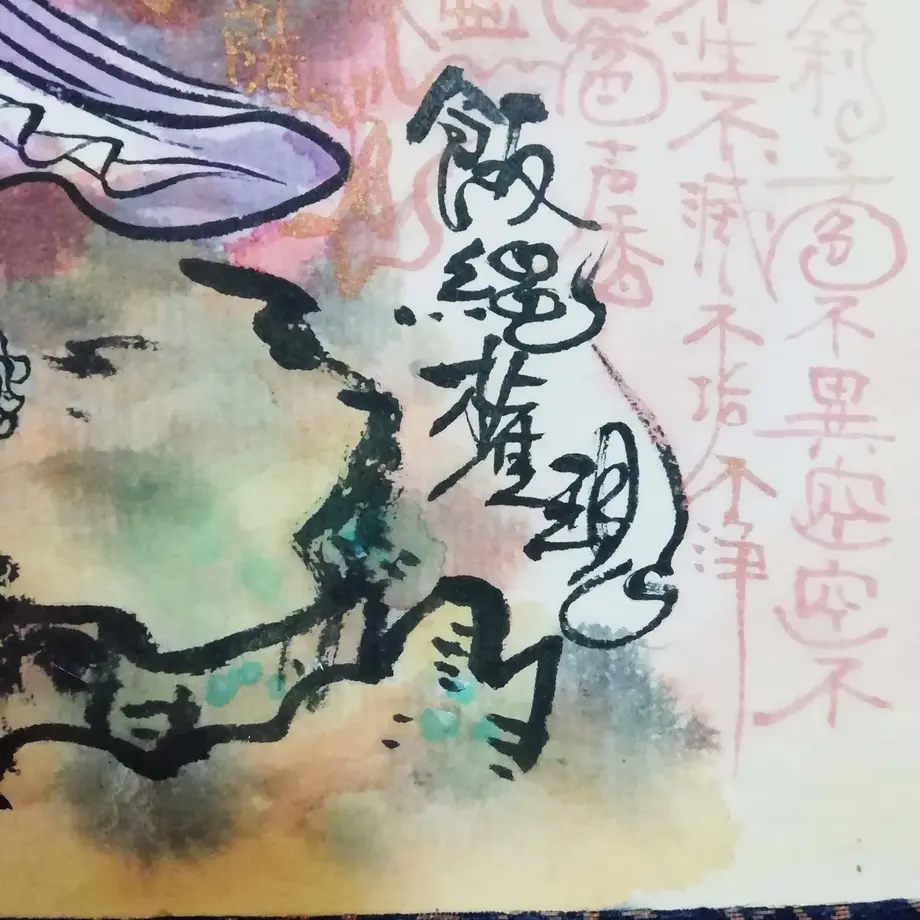 利子色不異空空不
不生不滅不垢不浄
色声香
飯縄権現